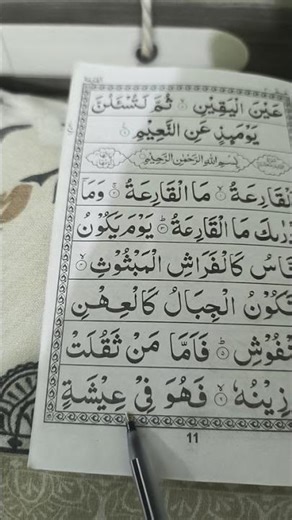 عَيْنَ الْيَقِيْنِ ۙ ثُمَّ لَتُسْـَٔلُنَّ
يَوْمَىِٕذٍ عَنِ النَّعِيْمِ
بِسْمِ اللّٰهِ الرَّحْمٰنِ الرَّحِيْمِ
اَلْقَارِعَةُ ۙ مَا الْقَارِعَةُ ۚ وَمَاۤ
اَدْرٰىكَ مَا الْقَارِعَةُ ؕ يَوْمَ يَكُوْنُ
النَّاسُ كَالْفَرَاشِ الْمَبْثُوْثِ ۙ
وَتَكُوْنُ الْجِبَالُ كَالْعِهْنِ
الْمَنْفُوْشِ ؕ فَاَمَّا مَنْ ثَقُلَتْ
مَوَازِيْنُهٗ ۙ فَهُوَ فِيْ عِيْشَةٍ
11